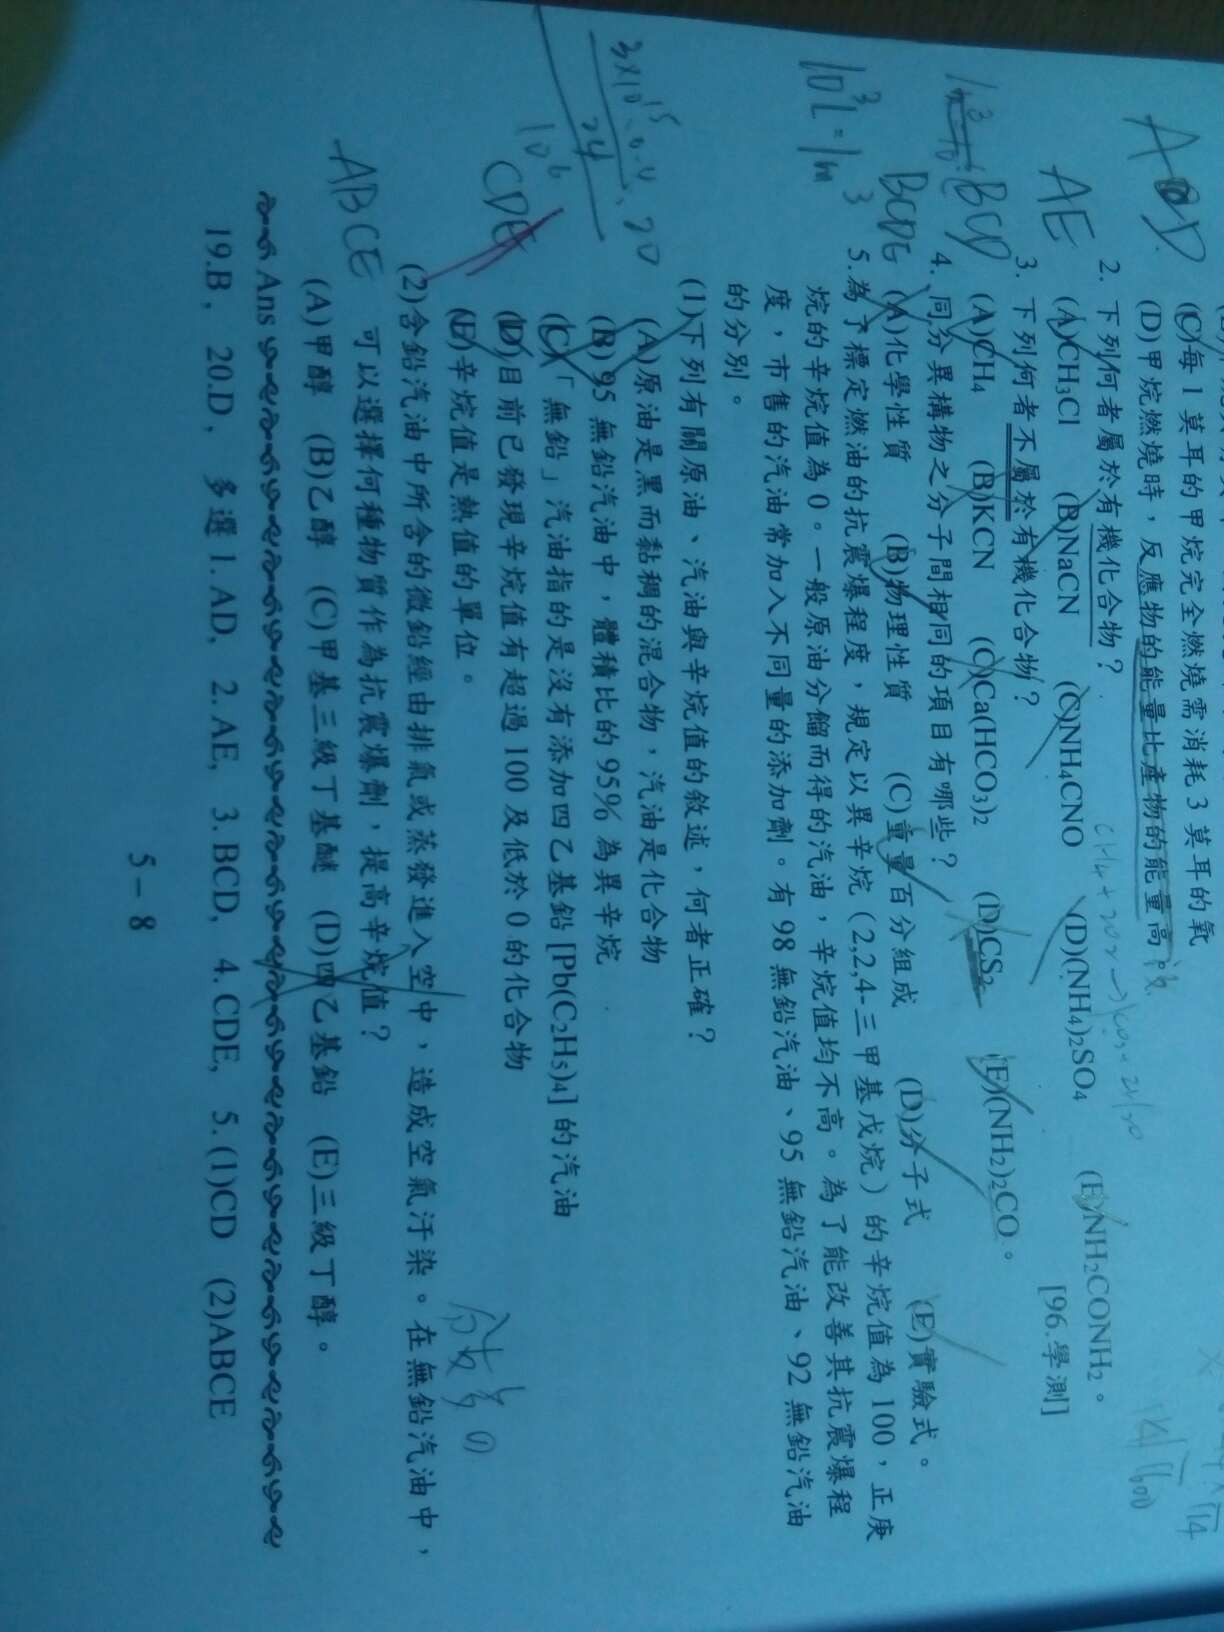 (C)每 1 莫耳的甲烷完全燃燒需消耗 3 莫耳的氧
(D)甲烷燃燒時，反應物的能量比產物的能量高
A D
2. 下列何者屬於有機化合物？
CH4 + 2O2 → CO2 + 2H2O
(A)CH3Cl (B)NaCN (C)NH4CNO (D)(NH4)2SO4 (E)NH2CONH2。
AE
3. 下列何者不屬於有機化合物？ [96.學測]
(A)CH4 (B)KCN (C)Ca(HCO3)2 (D)CS2 (E)(NH2)2CO。
BCD
4. 同分異構物之分子間相同的項目有哪些？
(A)化學性質 (B)物理性質 (C)重量百分組成 (D)分子式 (E)實驗式。
BCDE
5.為了標定燃油的抗震爆程度，規定以異辛烷（2,2,4-三甲基戊烷）的辛烷值為 100，正庚
烷的辛烷值為 0。一般原油分餾而得的汽油，辛烷值均不高。為了能改善其抗震爆程
度，市售的汽油常加入不同量的添加劑。有 98 無鉛汽油、95 無鉛汽油、92 無鉛汽油
的分別。
10³L = 1m³
(1)下列有關原油、汽油與辛烷值的敘述，何者正確？
(A)原油是黑而黏稠的混合物，汽油是化合物
(B) 95 無鉛汽油中，體積比的 95% 為異辛烷
(C)「無鉛」汽油指的是沒有添加四乙基鉛 [Pb(C2H5)4] 的汽油
(D)目前已發現辛烷值有超過 100 及低於 0 的化合物
(E)辛烷值是熱值的單位。
CDE
(2)含鉛汽油中所含的微鉛經由排氣或蒸發進入空中，造成空氣汙染。在無鉛汽油中，
可以選擇何種物質作為抗震爆劑，提高辛烷值？
(A)甲醇 (B)乙醇 (C)甲基三級丁基醚 (D)四乙基鉛 (E)三級丁醇。
ABCE
Ans
19.B， 20.D， 多選 1. AD， 2. AE， 3. BCD， 4. CDE， 5. (1)CD (2)ABCE
5 - 8